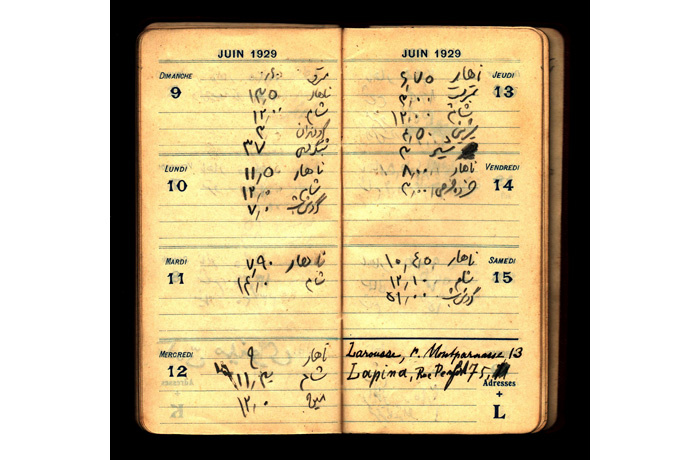 JUIN 1929
DIMANCHE
9
مترو
ناهار ۱۳٫۵
شام ۱۲٫۰۰
۳
۳۷
LUNDI
10
ناهار ۱۱٫۵۰
شام ۱۲٫۰
گردش شب ۷٫۰
MARDI
11
ناهار ۷٫۹۰
شام ۱۴٫۰
MERCREDI
12
ناهار ۹
شام ۱۱٫۳۰
۱۲٫۰
JUIN 1929
JEUDI
13
ناهار ۶٫۷۵
۳٫۰۰
شام ۱۲٫۰۰
۴٫۵۰
شیر ۳
VENDREDI
14
ناهار ۸٫۰۰
خرده خرجی ۳٫۰۰
SAMEDI
15
ناهار ۱۰٫۴۵
شام ۱۲٫۱۰
گردش شب ۵۱٫۰۰
Larousse, r. Montparnasse, 13
Lapina, Rue 75,
Adresses
+
L